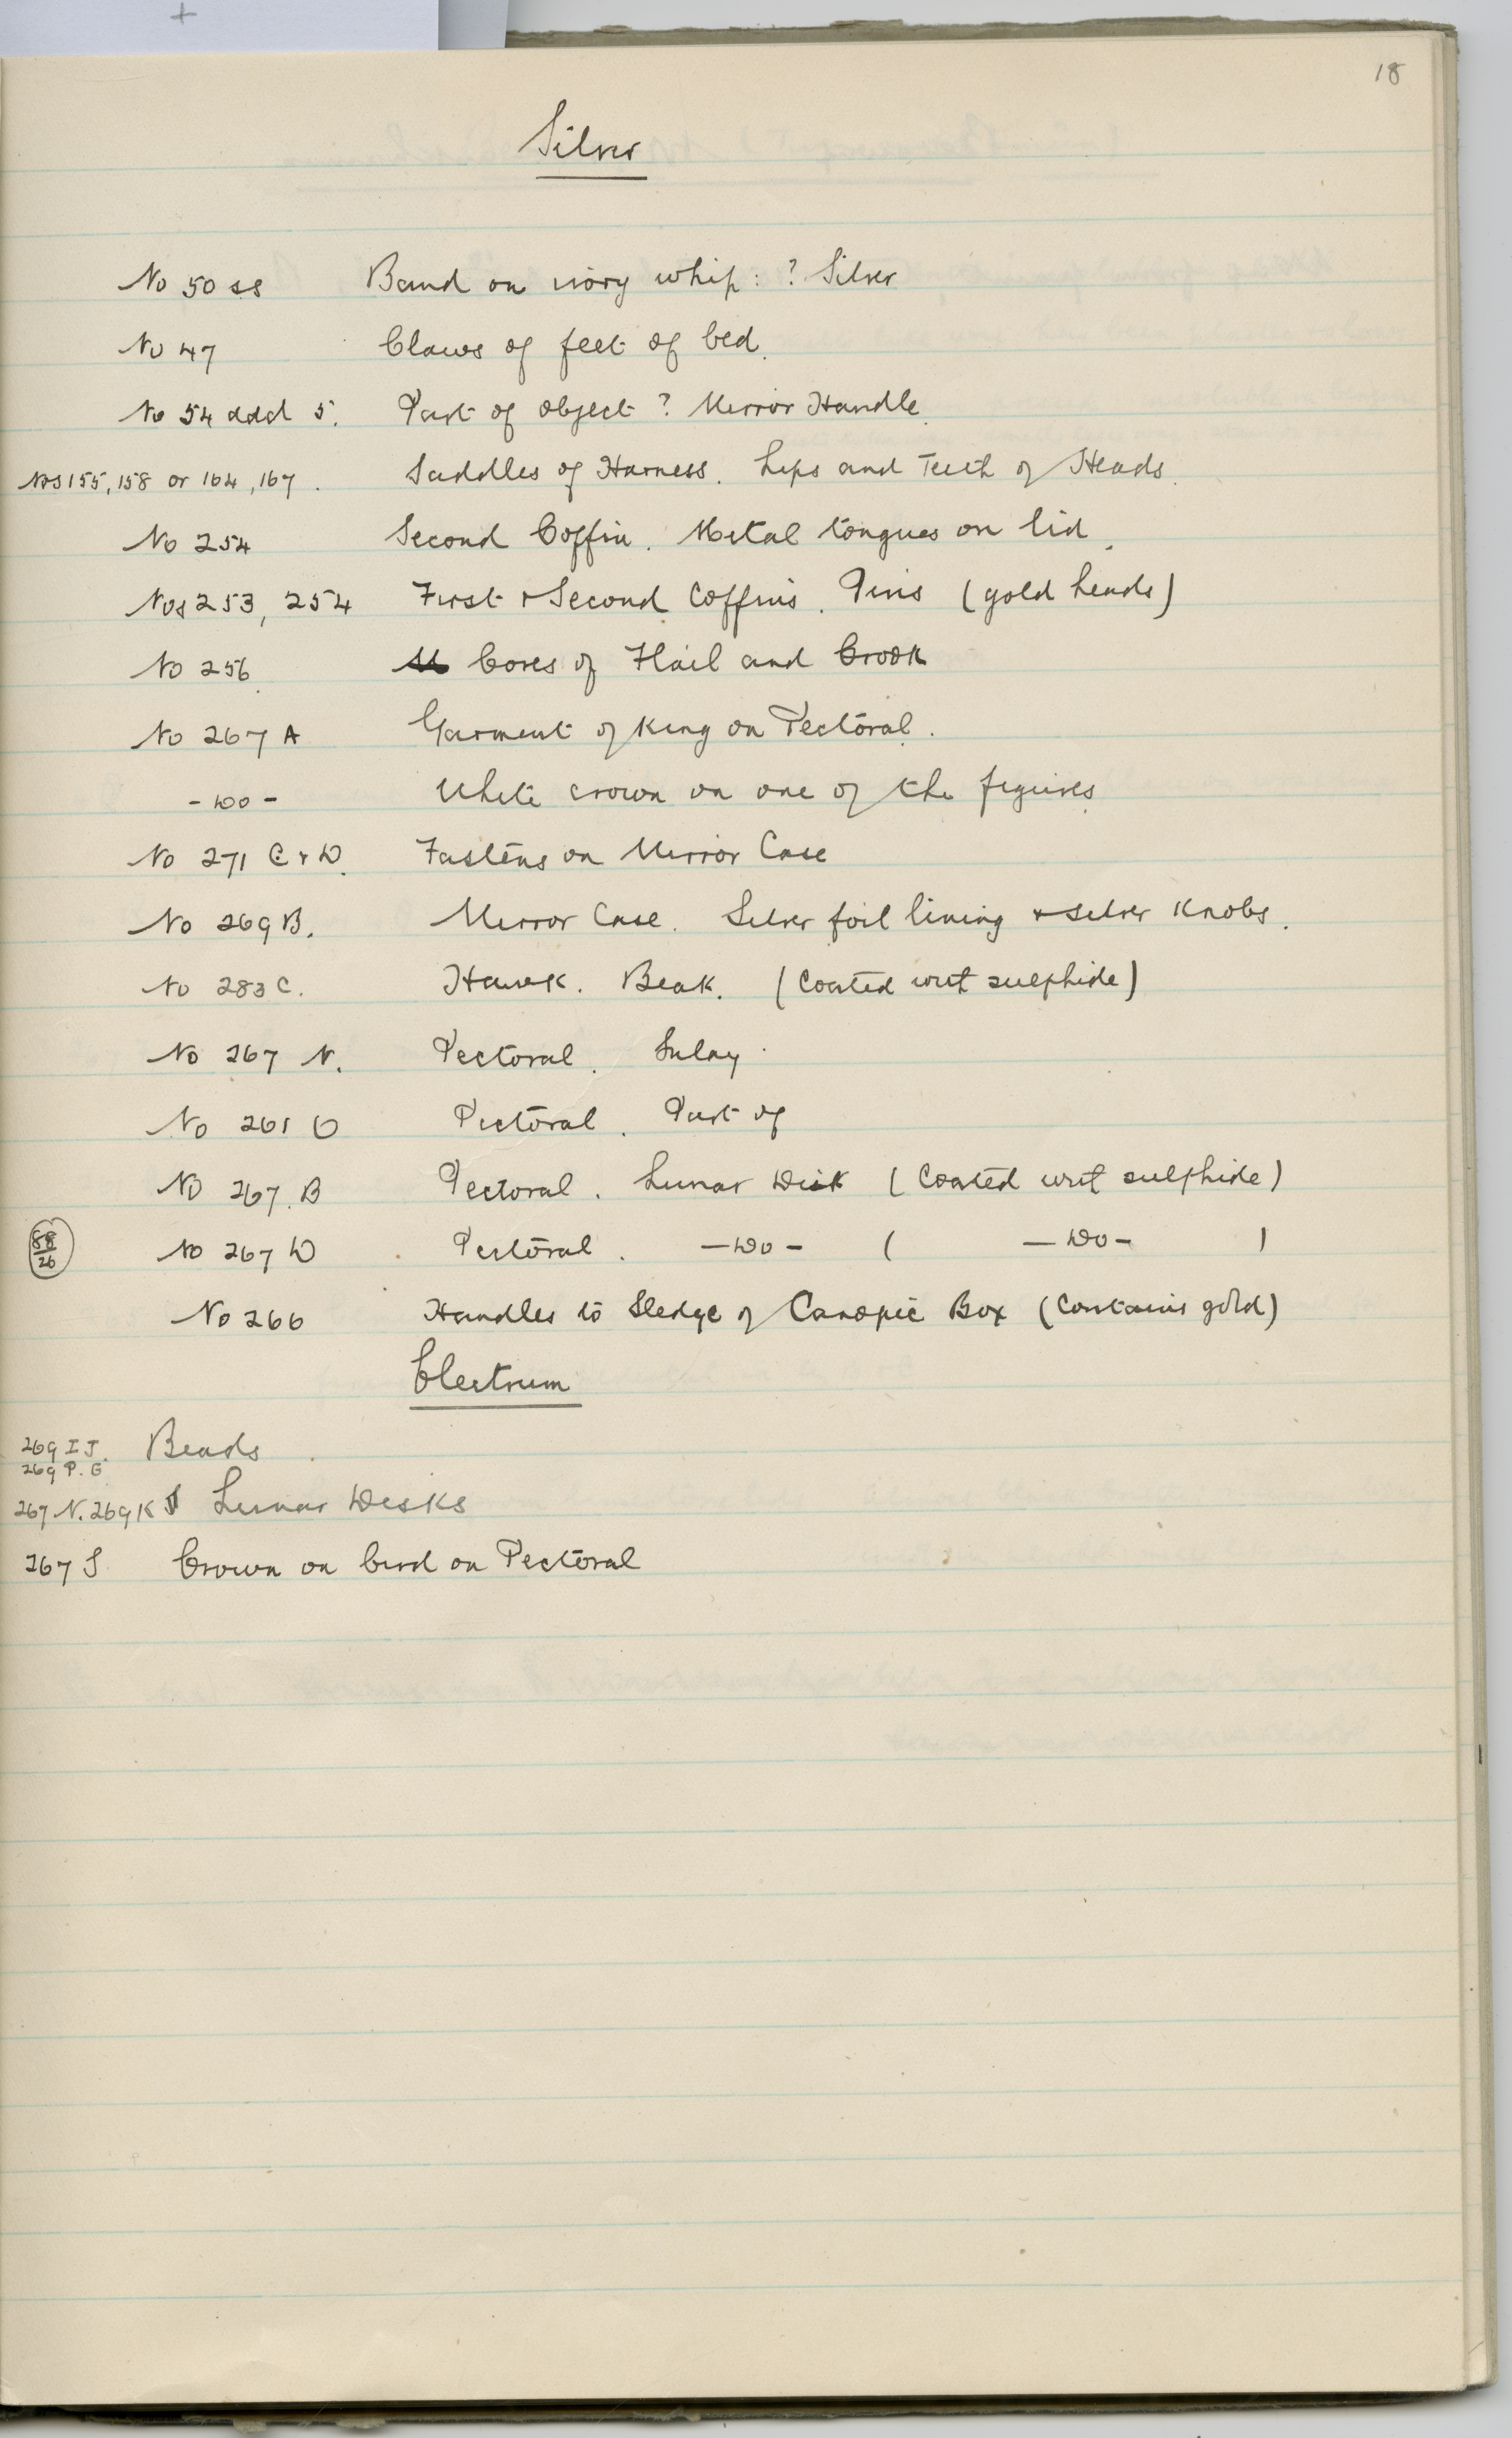 18
Silver
No 50 ss Band on ivory whip: ? Silver
No 47 Claws of feet of bed.
No 54 ddd 5. Part of object ? Mirror Handle.
Nos 155, 158 or 164, 167. Saddles of Harness. Lips and Teeth of Heads.
No 254 Second Coffin. Metal tongues on lid.
Nos 253, 254 First & Second Coffins. Pins (gold heads)
No 256 Cores of Flail and Crook
No 267 A Garment of King on Pectoral.
- Do - White crown on one of the figures
No 271 C & D. Fastens on Mirror Case
No 269 B. Mirror Case. Silver foil lining & silver Knobs.
No 283 C. Hawk. Beak. (Coated with sulphide)
No 267 N. Pectoral. Inlay.
No 261 O Pectoral. Part of
No 267. B Pectoral. Lunar Disk (Coated with sulphide)
58/26 No 267 D Pectoral. - Do - ( - Do - )
No 266 Handles to Sledge of Canopic Box (Contains gold)
Electrum
269 I J. Beads
269 P. G
267 N. 269 K Lunar Disks
267 S Crown on bird on Pectoral